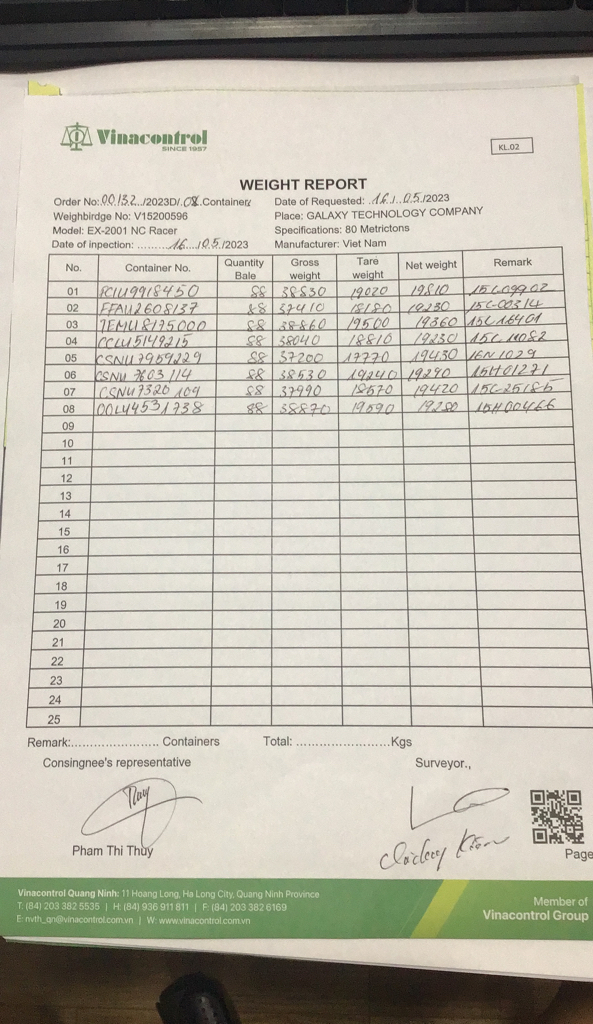 Vinacontrol
SINCE 1957
KL.02
WEIGHT REPORT
Order No: 00132../2023D/.08.Containers
Date of Requested: 16../.05./2023
Weighbirdge No: V15200596
Place: GALAXY TECHNOLOGY COMPANY
Model: EX-2001 NC Racer
Specifications: 80 Metrictons
Date of inpection: .........16..../05./2023
Manufacturer: Viet Nam
No. Container No. Quantity Bale Gross weight Tare weight Net weight Remark
01 FCIU9918450 88 38830 19020 19810 15C09902
02 FFAU2608137 88 37410 18180 19230 15C00314
03 TEMU8175000 88 38860 19500 19360 15C16401
04 CCLU5149215 88 38040 18810 19230
05 CSNU7959229 88 37200 17770 19430 16N1029
06 CSNU7603114 88 38530 19240 19290 15H01271
07 CSNU7320109 88 37990 18570 19420 15C25185
08 OOLU4531738 88 38870 19590 19280 15H00466
09
10
11
12
13
14
15
16
17
18
19
20
21
22
23
24
25
Remark:........................ Containers Total: .........................Kgs
Consingnee's representative
Surveyor.,
Thuy
Pham Thi Thuy
Page
Vinacontrol Quang Ninh: 11 Hoang Long, Ha Long City, Quang Ninh Province
T: (84) 203 382 5535 | H: (84) 936 911 811 | F: (84) 203 382 6169
E: nvth_qn@vinacontrol.com.vn | W: www.vinacontrol.com.vn
Member of
Vinacontrol Group